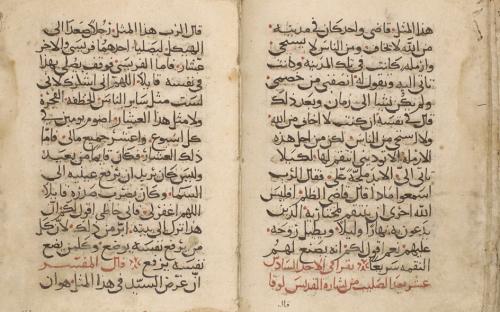 هذا المثل قاضي واحد كان في مدينه
من الله لا يخاف ومن الناس لا يستحي
وارمله كانت في تلك المدينه وكانت
تاتي اليه وتقول له انصفني من خصمي
ولم يكن يشا الى زمان وبعد ذلك
قال في نفسه ان كنت لا اخاف من الله
ولا استحي من الناس لكن من اجل هذه
الارمله لا تؤذيني انتقم لها لكيلا
تاتي الى فقال الرب
اسمعوا ماذا قال قاضي الظلم افليس
الله احرى ان ينتقم لمختاريه الذين
يدعون به نهارا وليلا ويطيل روحه
عليهم نعم اقول لكم انه يصنع لهم
النقمه سريعا يقرا في الاحد السادس
عشر بعد الصليب من بشاره القديس لوقا
قال
قال الرب هذا المثل رجلان صعدا الى
الهيكل ليصليا احدهما فريسي والاخر
عشار فاما الفريسي فوقف يصلي بهذا
في نفسه قايلا اللهم اني اشكرك لاني
لست مثل ساير الناس الخطفه الفجره
ولا مثل هذا العشار اصوم يومين في
كل اسبوع واعشر جميع مالي فاما
ذلك العشار فكان قايما من بعيد
وليس كان يريد ان يرفع عينيه الى
السما وكان يضرب صدره قايلا
اللهم اغفر لي فاني خاطي اقول لكم ان
هذا نزل الى بيته ابر من ذلك لان كل
من يرفع نفسه يوضع وكلمن يضع
نفسه يرفع قال المفسر
ان غرض السيد في هذا المثل هو ان